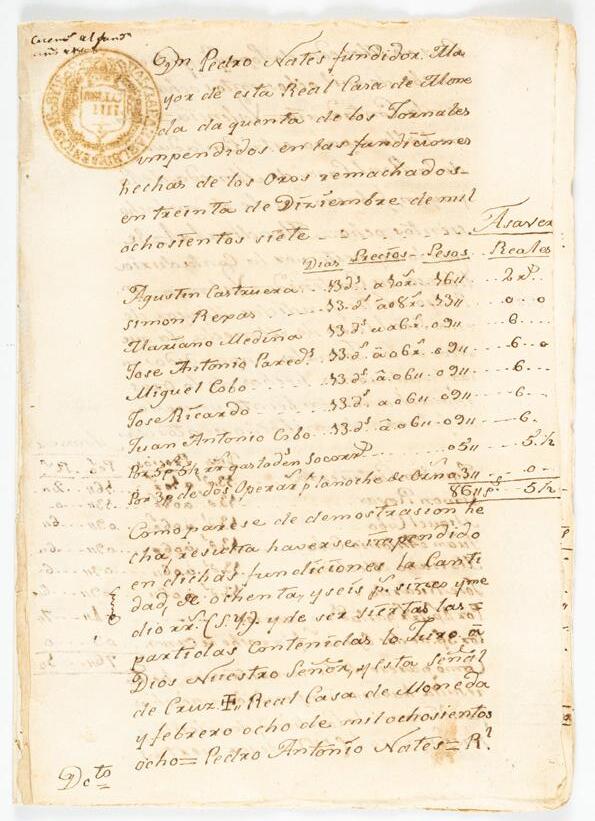 Dn Pedro Nates fundidor Ma
yor de esta Real Casa de Mone
da da quenta de los Jornales
impendidos en las fundiciones
hechas de los Oros remachados
en treinta de Diziembre de mil
ochosientos siete
Asaver
Dias Precios Pesos Reales
Agustin Castruera 13 ds a 10 rs 16 2 rs
Simon Repas 13 ds a 08 rs 13 0 0
Mariano Medina 13 ds a 06 rs 09 6
Jose Antonio Pareds 13 ds a 06 rs 09 6
Miguel Cobo 13 ds a 06 09 6
Jose Ricardo 13 ds a 06 09 6
Juan Antonio Cobo 13 ds a 06 09 6
Por 5p 5½ rr gastados en Socorro 05 5 ½
Por 3p de dos Operars pr la noche de 3 0
86 ps 5 ½
Como parese de demostrasion he
cha, resulta haverse impendido
en dichas fundiciones la Canti
dad, de ochenta, y seis ps sinco y me
dio rrs (S.Y.) y de ser siertas las
partidas Contenidas lo Juro â
Dios Nuestro Señor, y esta señal
de Cruz Real Casa de Moneda
y febrero ocho de mil ochosientos
ocho = Pedro Antonio Nates = Rl
Dcto